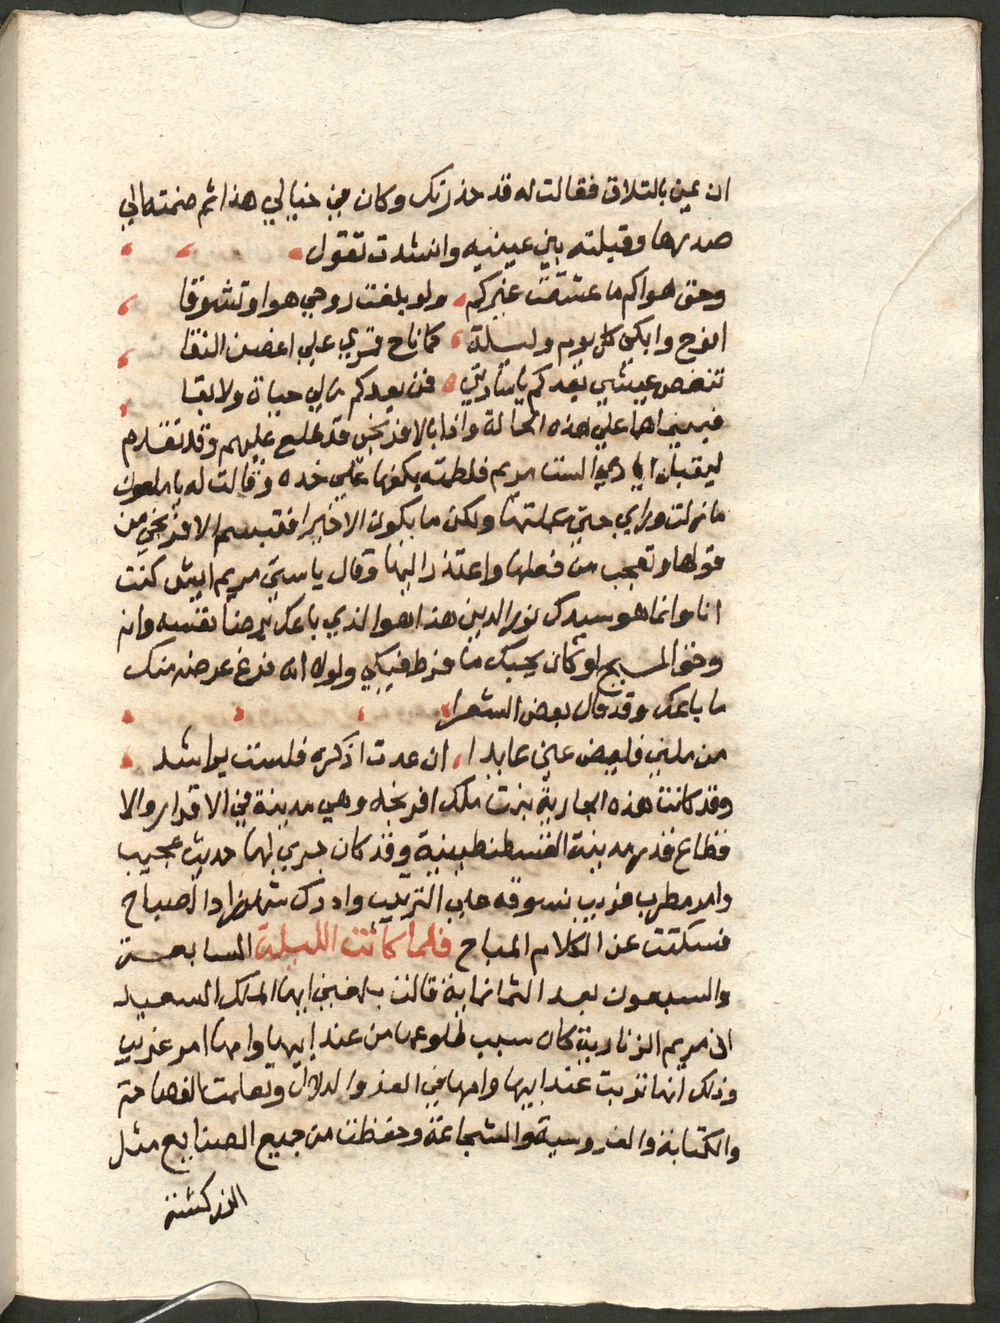 ان يمين بالتلاق فقالت له قد حذرتك وكان في خيالي هذا ثم ضمته الي
صدرها وقبلته بين عينيه وانشدت تقول
وحق هواكم ما عشقت غيركم ولو بلغت روحي هوا وتشوقا
انوح وابكي كل يوم وليلة كما ناح قمري علي اغصن النقا
تنغص عيشي بعدكم يا سادتي فمن بعدكم مالي حياة ولا بقا
فبينما هما علي هذه الحالة واذا بالافرنجي قد طلع عليهم وتقدم
ليقبل ايادي الست مريم فلطمته بكفها علي خده وقالت له يا ملعون
ما زلت وراي حتي عملتها ولكن ما يكون الا خيرا فتبسم الافرنجي من
قولها وتعجب من فعلها واعتذر اليها وقال يا ستي مريم ايش كنت
انا وانما هو سيدك نور الدين هذا هو الذي باعك برضا نفسه وانه
وحق المسيح لو كان يحبك ما فرط فيكي ولولا انه فرغ غرضه منك
ما باعك وقد قال بعض الشعرا
من ملني فليمض عني عابدا ان عدت اذكره فلست براشد
وقد كانت هذه الجارية بنت ملك افرنجه وهي مدينة في الاقدار والا
قطاع قدر مدينة القسطنطينية وقد كان جري لها حديث عجيب
وامر مطرب غريب نسوقه علي الترتيب وادرك شهرزاد الصباح
فسكتت عن الكلام المباح فلما كانت الليلة السابعة
والسبعون بعد الثمانماية قالت بلغني ايها الملك السعيد
ان مريم الزنارية كان سبب طلوعها من عند ابيها وامها امر غريب
وذلك انها تربت عند ابيها وامها في العز والدلال وتعلمت الفصاحة
والكتابة والفروسية والشجاعة وحفظت من جميع الصنايع مثل
الزركشة